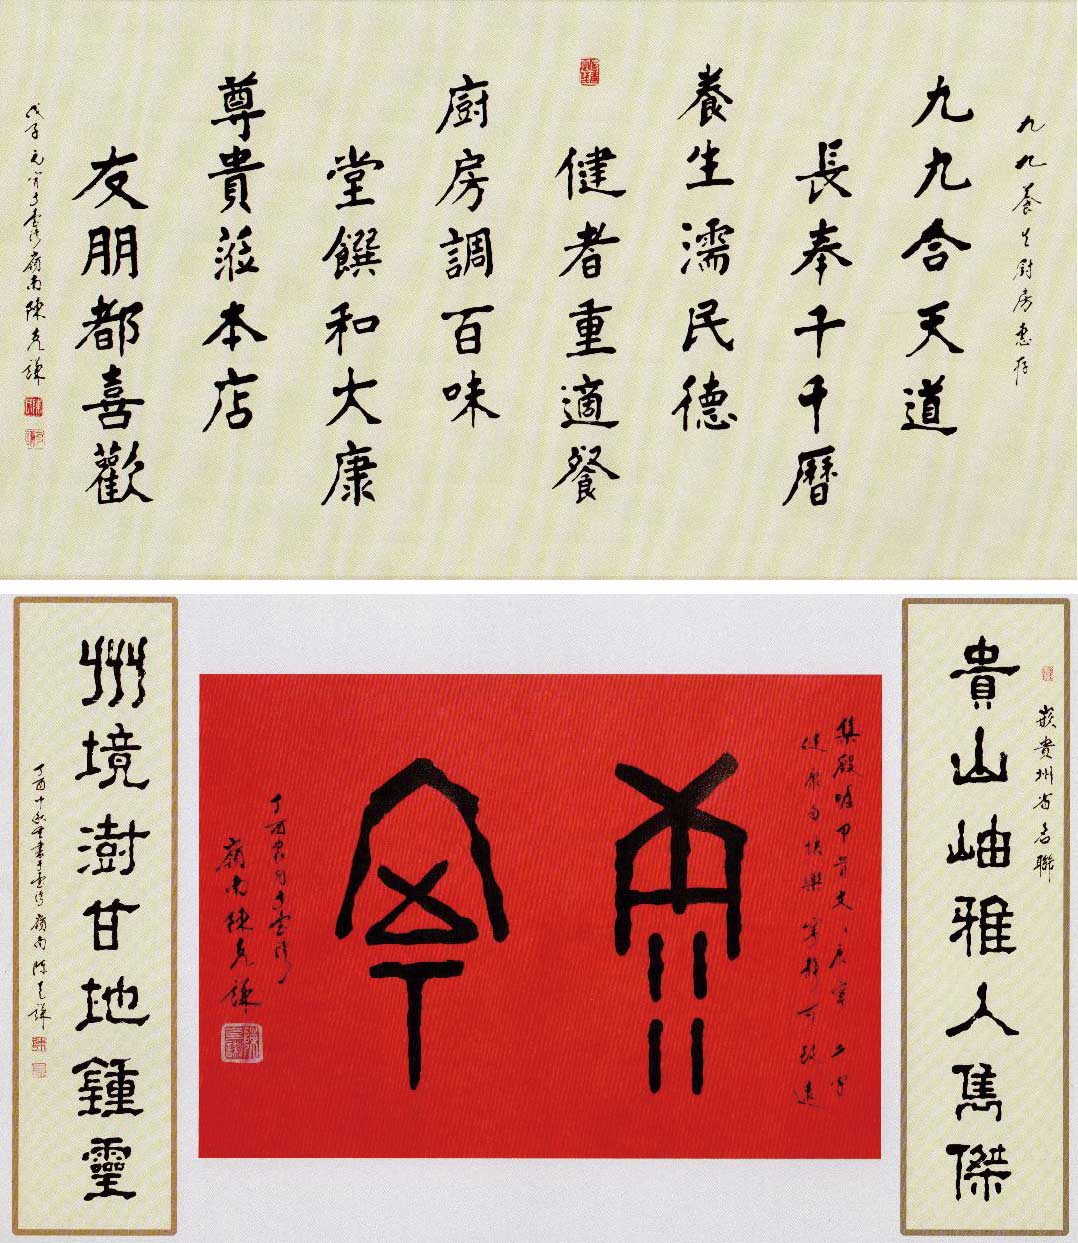 九九養生廚房惠存
九九合天道
長奉千千曆
養生濡民德
健者重適餐
廚房調百味
堂饌和大康
尊貴蒞本店
友朋都喜歡
戊子元宵于臺灣嶺南陳克謙
嵌貴州省名聯
貴山岫雅人雋傑
集殷墟甲骨文
康寧二字
健康自快樂寧靜可致遠
康寧
嶺南陳克謙
州境澍甘地鍾靈